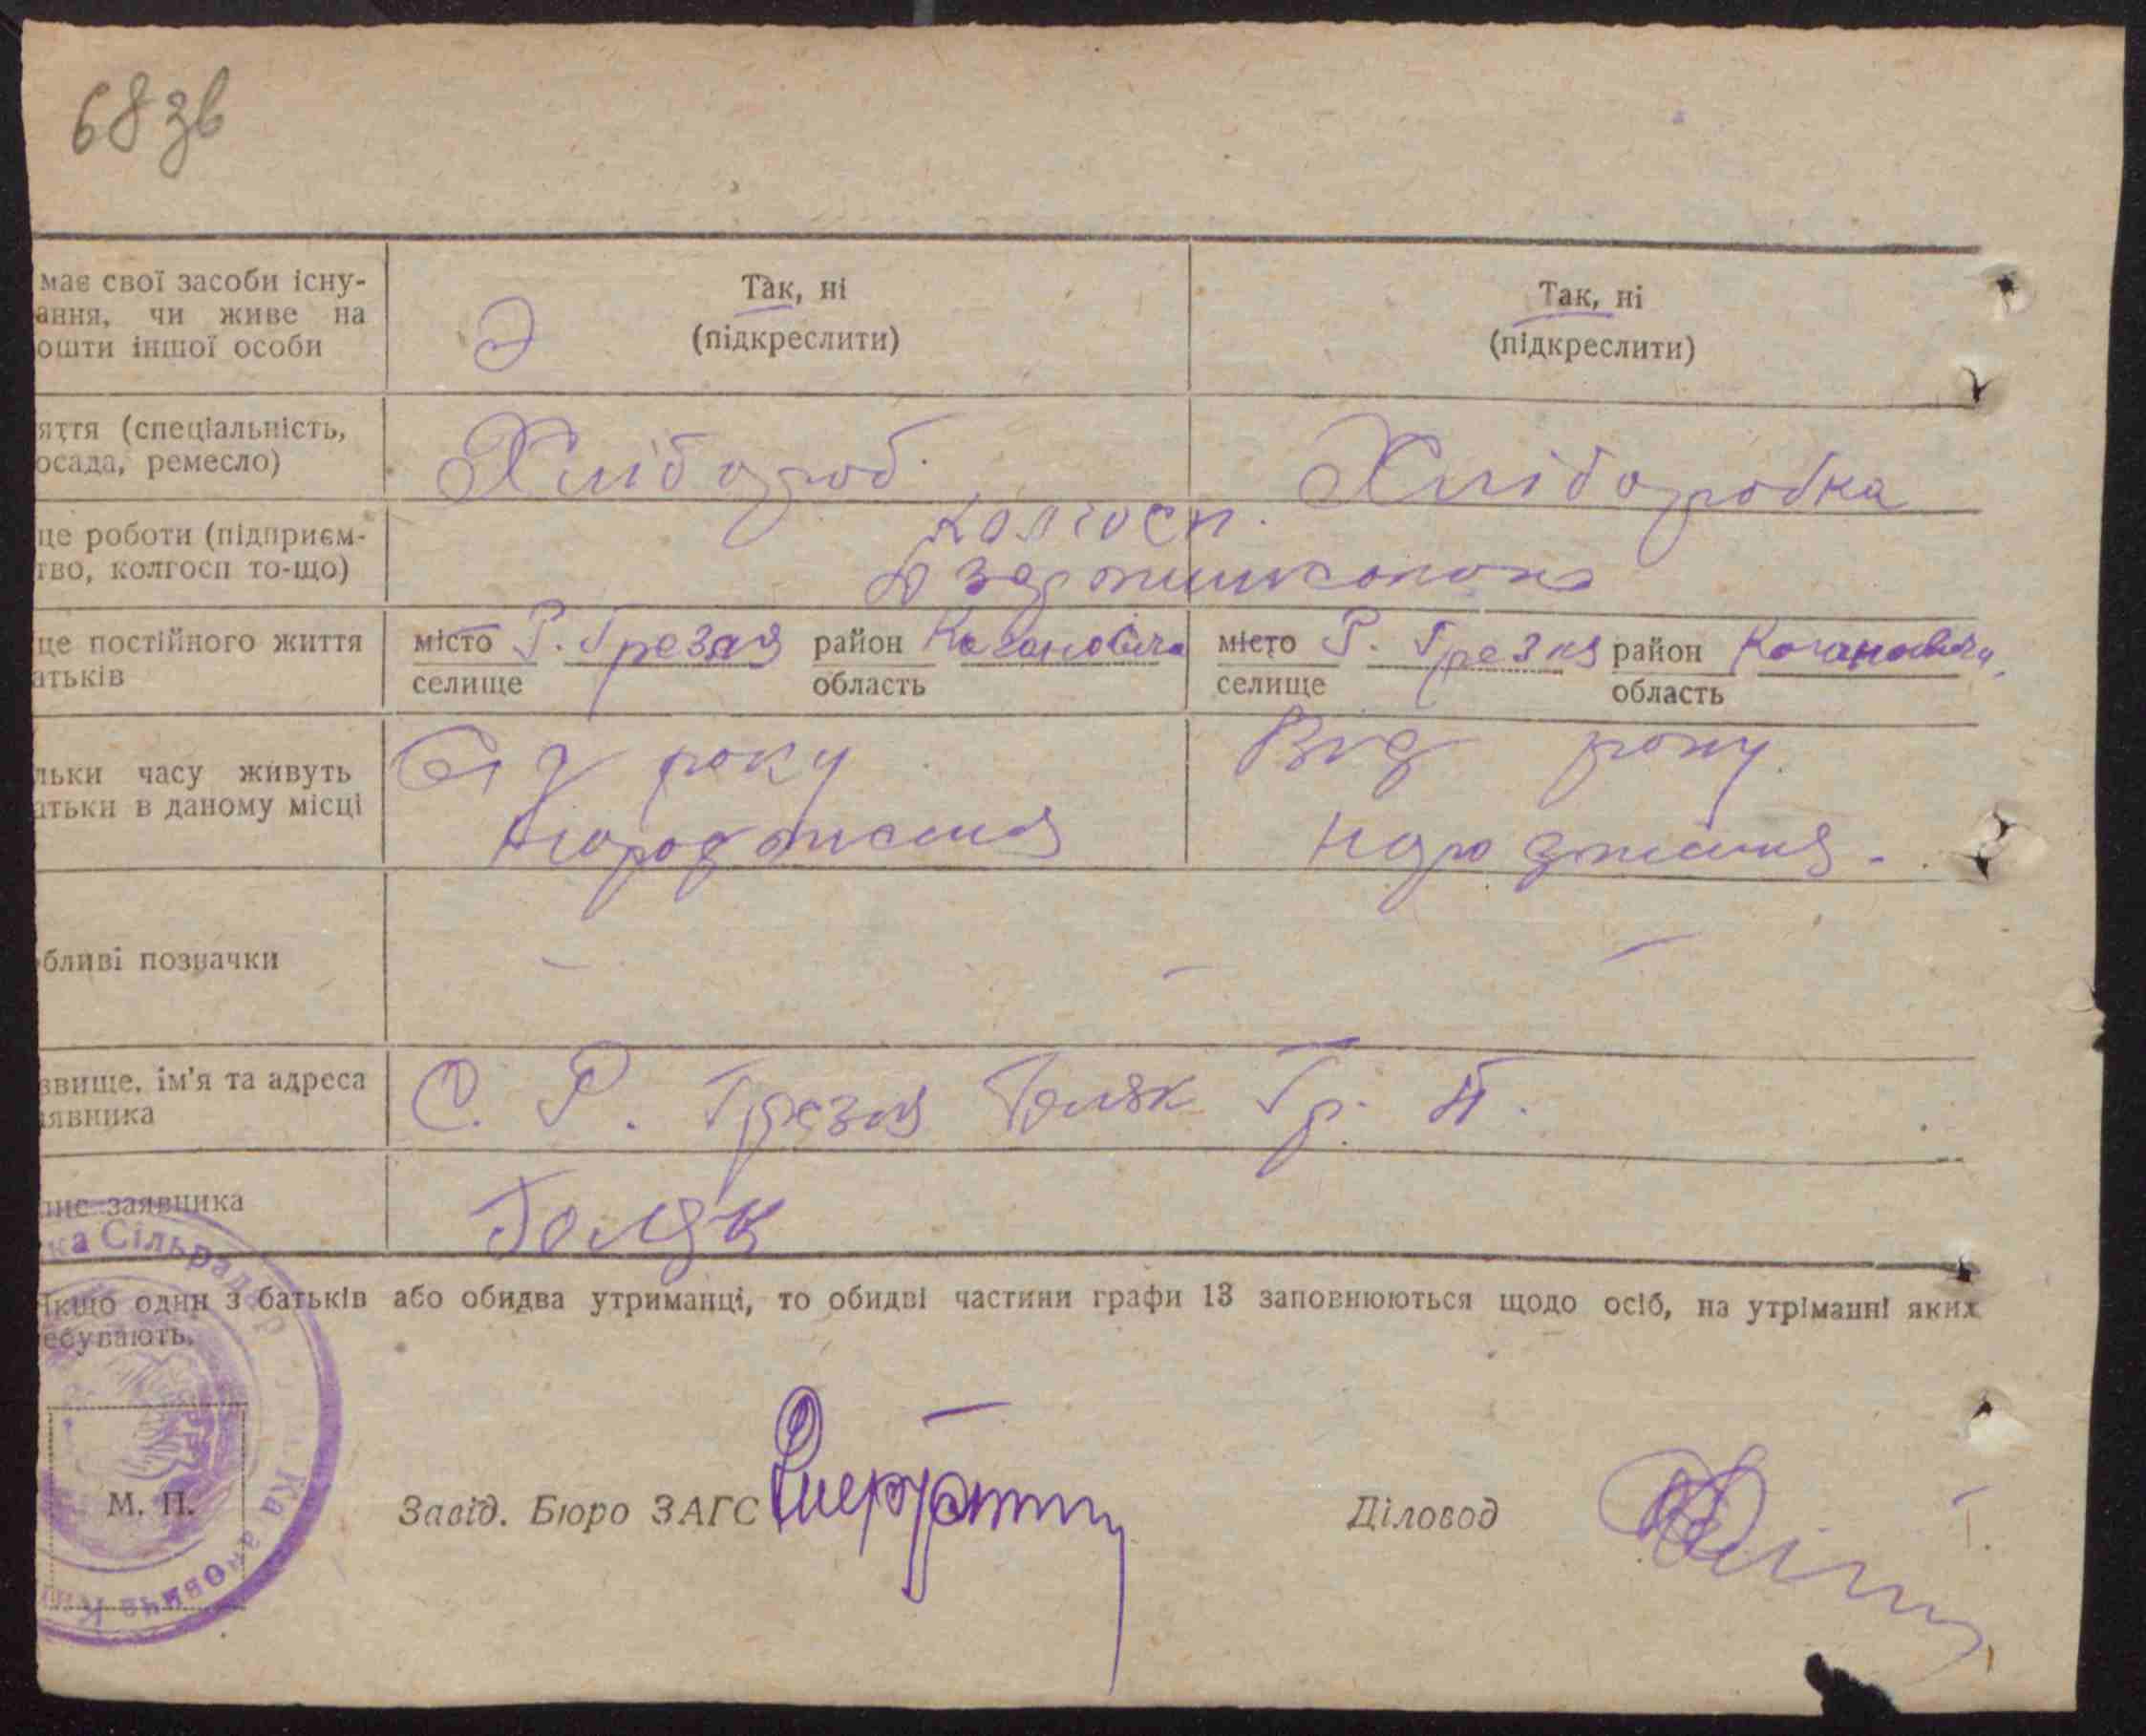 68 зв
має свої засоби існу-
ання, чи живе на
ошти іншої особи
Так, ні
(підкреслити)
Так, ні
(підкреслити)
яття (спеціальність,
осада, ремесло)
Хлібороб.
Хліборобка
це роботи (підприєм-
тво, колгосп то-що)
Колгосп.
це постійного життя
атьків
місто Р. Грезля район Кагановича
селище область
місто Р. Грезля район Кагановича
селище область
льки часу живуть
атьки в даному місці
Від року
народження
Від року
народження.
бливі позначки
звище, ім'я та адреса
аявника
С. Р. Грезля Голяк Гр. П.
пис заявника
Голяк
Якщо один з батьків або обидва утриманці, то обидві частини графи 13 заповнюються щодо осіб, на утріманні яких
ебувають.
ка Сільрада
Кагановича Киї
М. П.
Завід. Бюро ЗАГС
Діловод